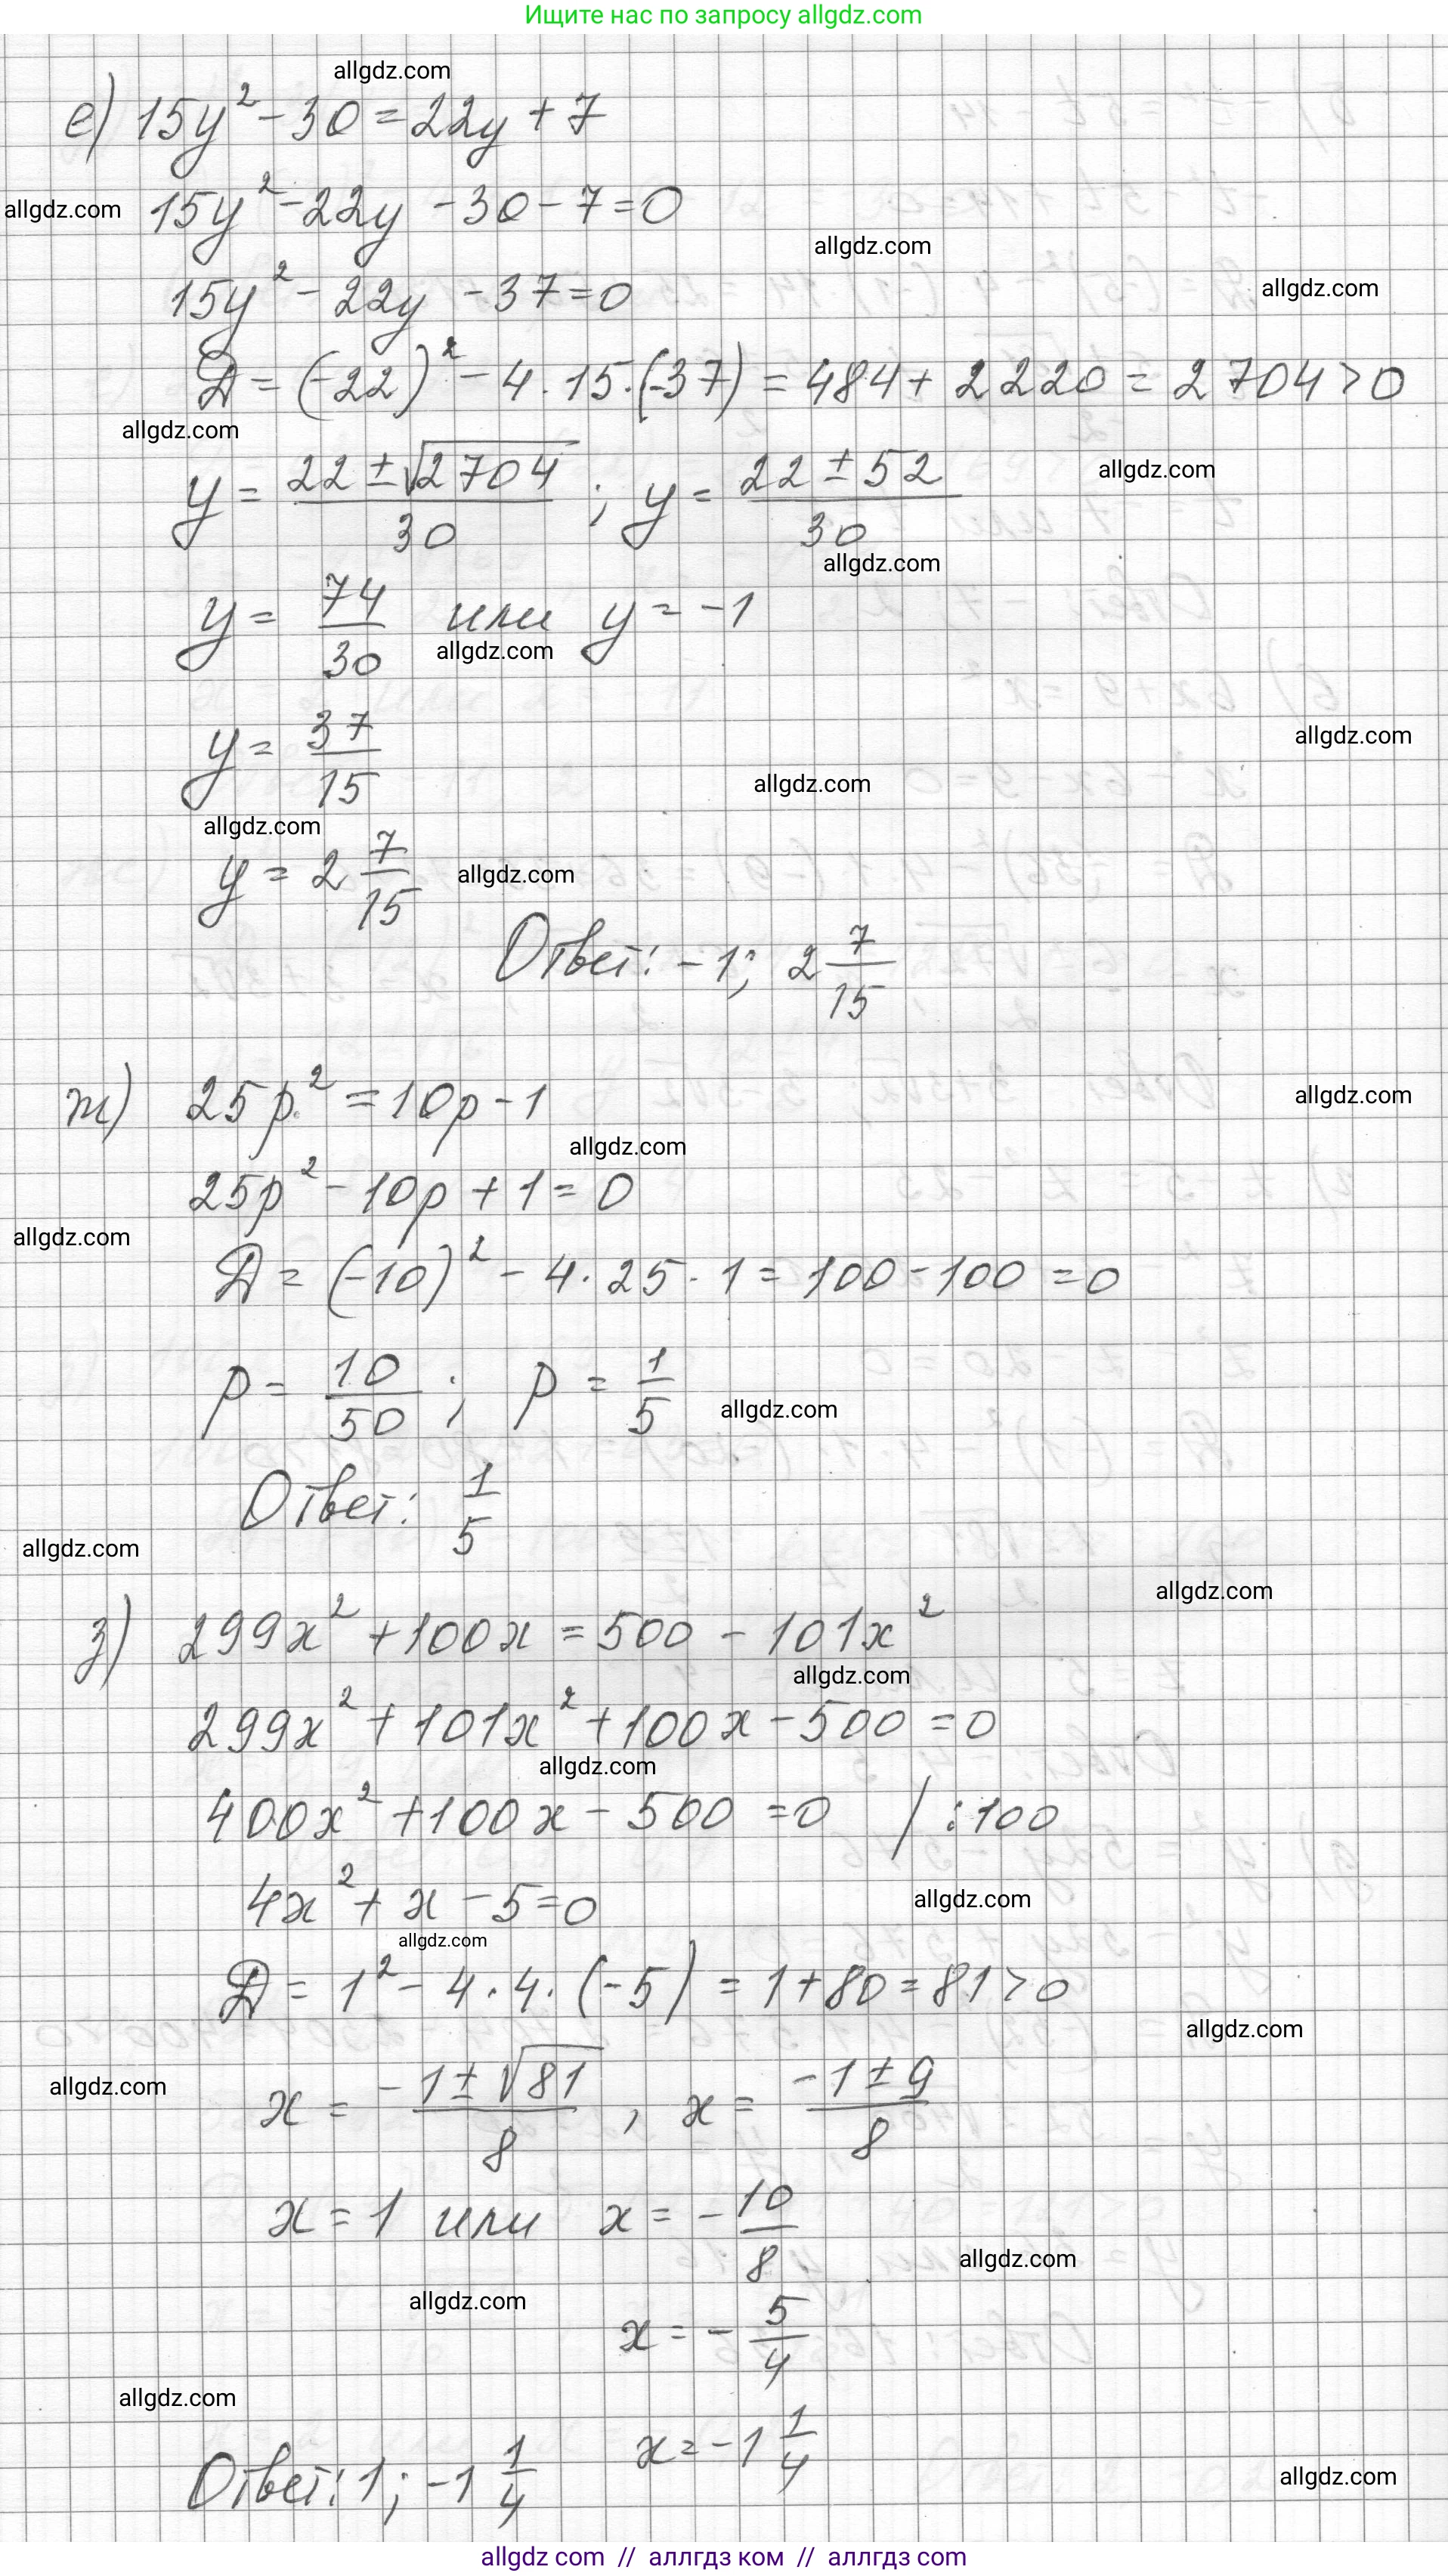 Ищите нас по запросу allgdz.com
allgdz.com
е) 15y² - 30 = 22y + 7
allgdz.com
15y² - 22y - 30 - 7 = 0
allgdz.com
allgdz.com
15y² - 22y - 37 = 0
D = (-22)² - 4 · 15 · (-37) = 484 + 2220 = 2704 > 0
allgdz.com
allgdz.com
y = (22 ± √2704)/30 ; y = (22 ± 52)/30
allgdz.com
y = 74/30 или y = -1
allgdz.com
allgdz.com
y = 37/15
allgdz.com
allgdz.com
y = 2 7/15
allgdz.com
Ответ: -1; 2 7/15
ж) 25p² = 10p - 1
allgdz.com
allgdz.com
25p² - 10p + 1 = 0
allgdz.com
D = (-10)² - 4 · 25 · 1 = 100 - 100 = 0
p = 10/50 ; p = 1/5
allgdz.com
Ответ: 1/5
allgdz.com
allgdz.com
з) 299x² + 100x = 500 - 101x²
allgdz.com
299x² + 101x² + 100x - 500 = 0
allgdz.com
400x² + 100x - 500 = 0 / :100
4x² + x - 5 = 0
allgdz.com
allgdz.com
D = 1² - 4 · 4 · (-5) = 1 + 80 = 81 > 0
allgdz.com
allgdz.com
x = (-1 ± √81)/8 , x = (-1 ± 9)/8
x = 1 или x = -10/8
allgdz.com
allgdz.com
x = -5/4
allgdz.com
x = -1 1/4
Ответ: 1; -1 1/4
allgdz.com
allgdz com // аллгдз ком // аллгдз com